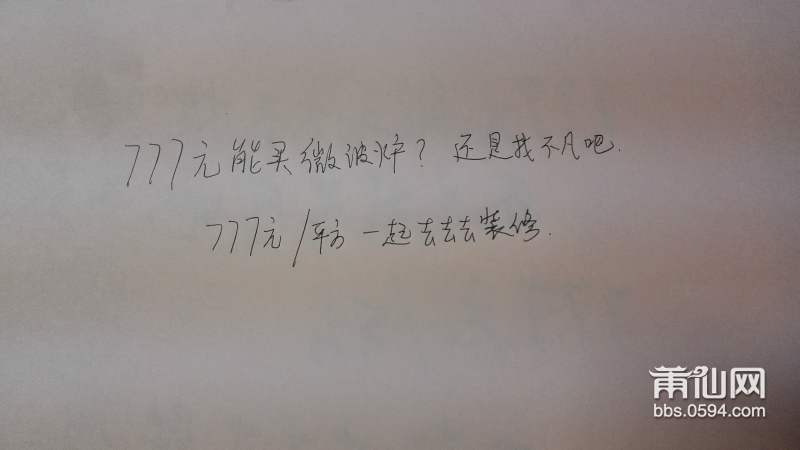 777元能买微波炉？还是找不凡吧.
777元/平方 一起去去去装修.
莆仙网
bbs.0594.com